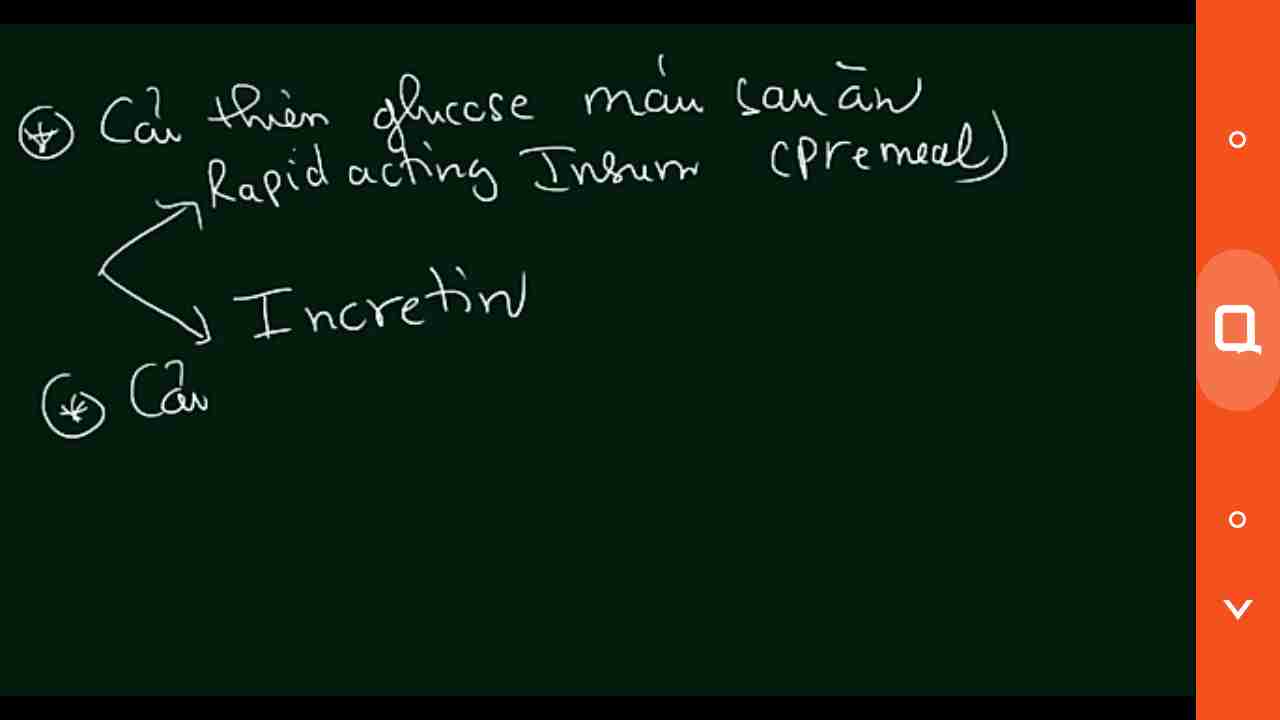 Cải thiện glucose máu sau ăn
Rapid acting Insulin (premeal)
Incretin
Cải